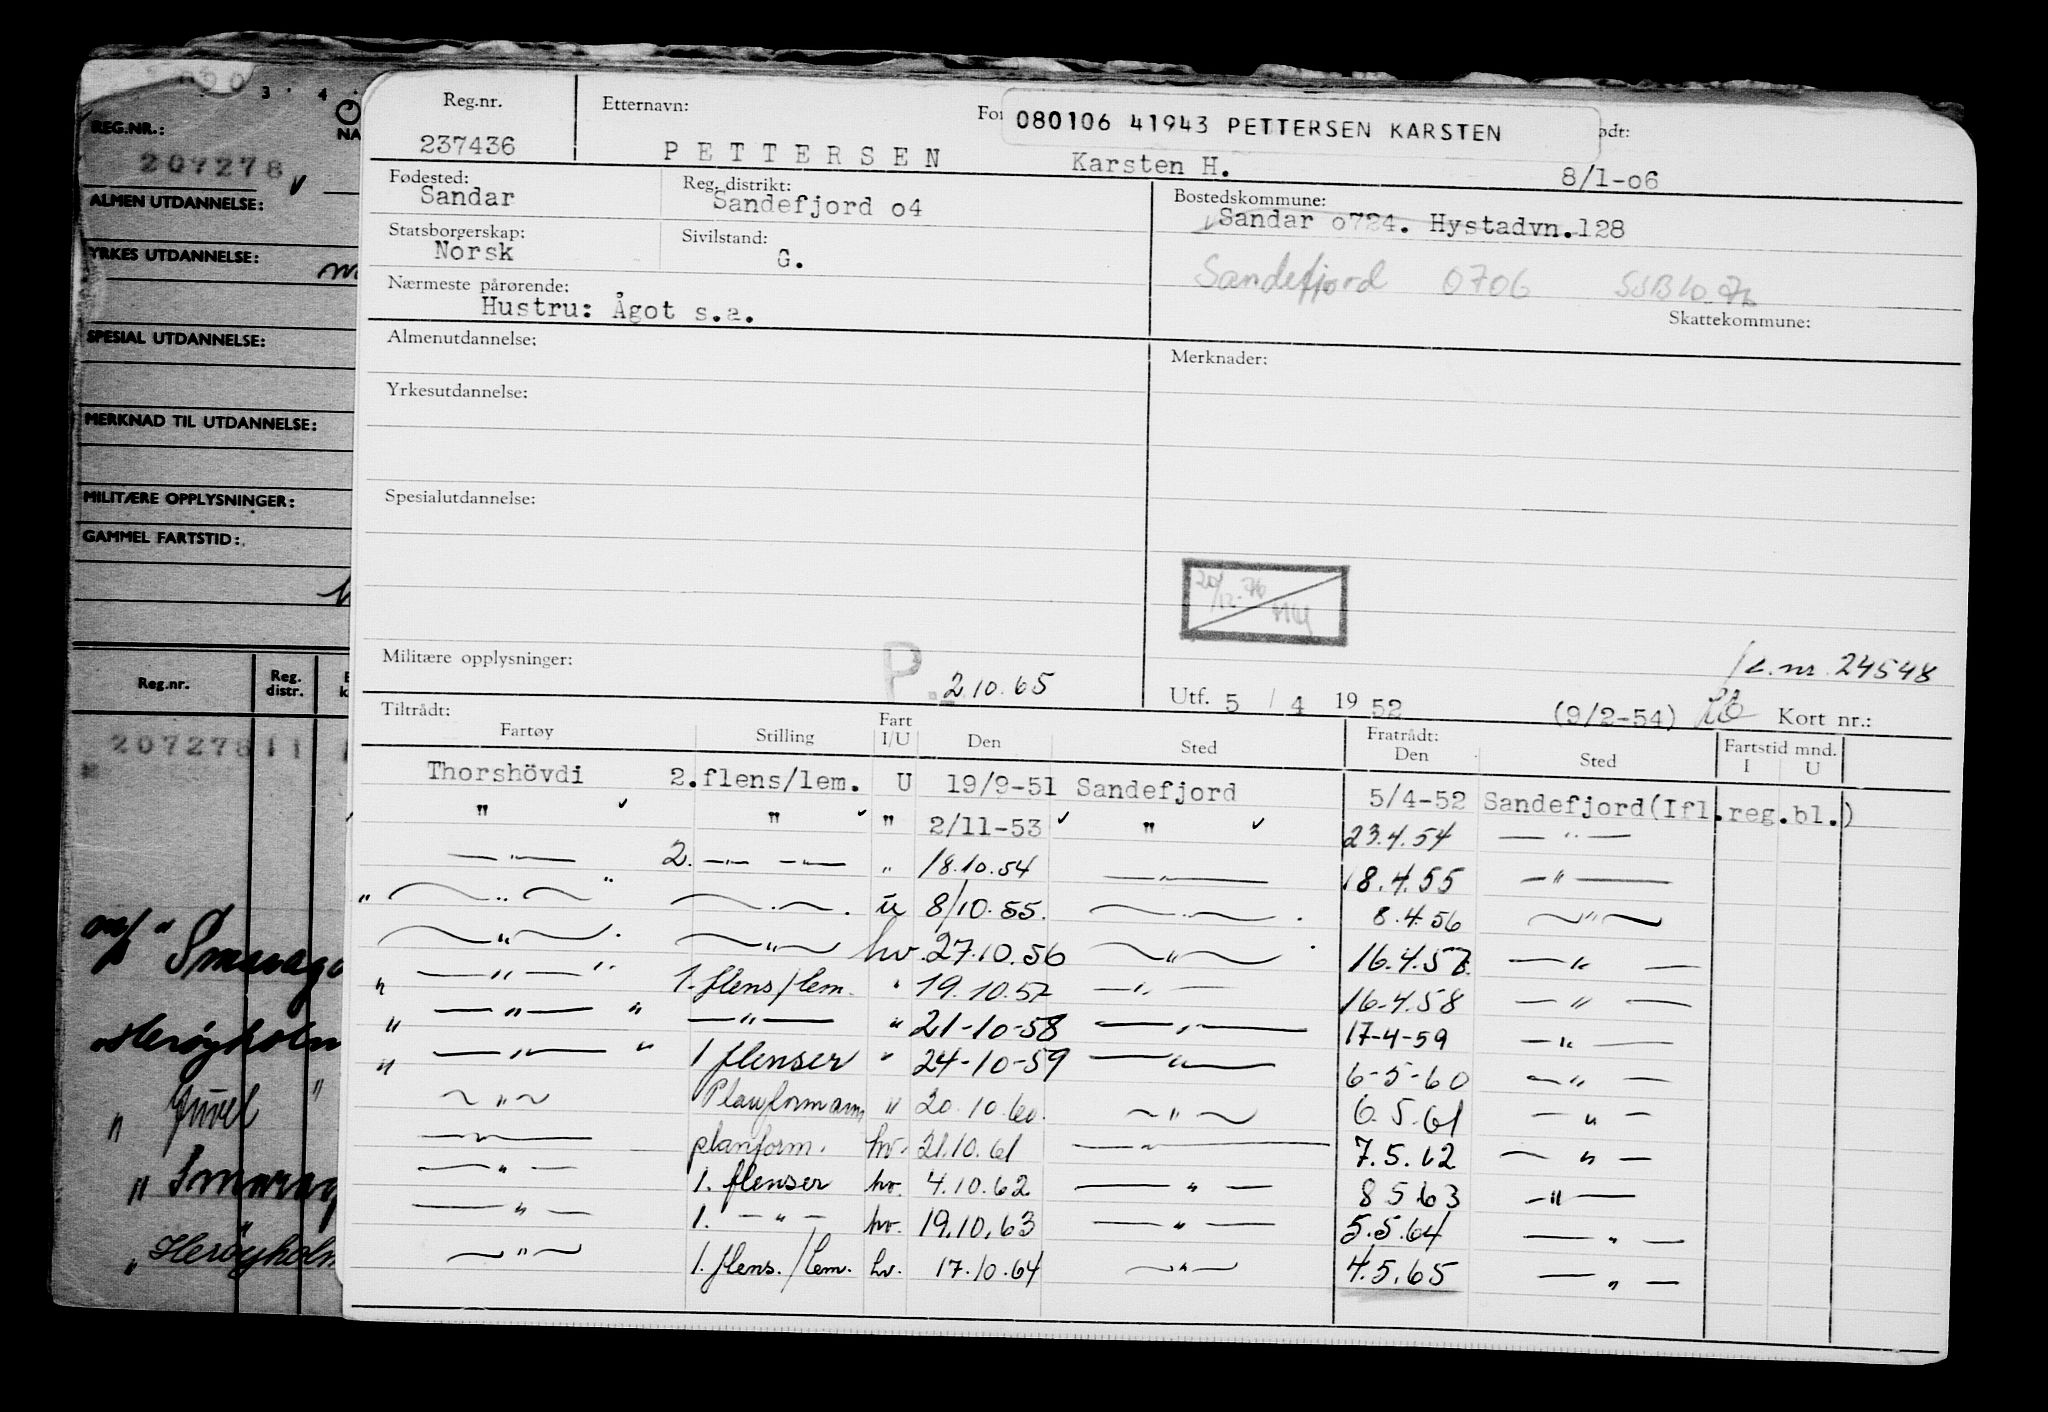 3 . 4 .
REG.NR.:
207278
ALMEN UTDANNELSE:
YRKES UTDANNELSE:
SPESIAL UTDANNELSE:
MERKNAD TIL UTDANNELSE:
MILITÆRE OPPLYSNINGER:
GAMMEL FARTSTID:
Reg.nr. Reg. distr.
207278 11
m/s " Smarag
" Herøyholm
" Juvel "
" Smarag
" Herøyholm
Reg.nr. Etternavn: For 080106 41943 PETTERSEN KARSTEN ødt:
237436 PETTERSEN Karsten H. 8/1-06
Fødested: Reg. distrikt: Bostedskommune:
Sandar Sandefjord 04 Sandar 0724. Hystadvn.128
Statsborgerskap: Sivilstand:
Norsk G. Sandefjord 0706
Nærmeste pårørende:
Hustru: Ågot s.a. Skattekommune:
Almenutdannelse: Merknader:
Yrkesutdannelse:
Spesialutdannelse:
20/12-76
Militære opplysninger: P. 2.10.65 l.nr. 24548
Utf. 5 / 4 19 52 (9/2-54) Kort nr.:
Tiltrådt: Fratrådt: Fartstid mnd.
Fartøy Stilling Fart I/U Den Sted Den Sted I U
Thorshövdi 2.flens/lem. U 19/9-51 Sandefjord 5/4-52 Sandefjord(Ifl.reg.bl.)
" " " 2/11-53 " 23.4.54 — " —
— " — 2. — " — — " — " 18.10.54 — " — 18.4.55 — " —
" — " — " — " — . u 8/10.55. — " — . 8.4.56 — " —
— " — . — " — hv. 27.10.56 — " — . 16.4.57. — " —
" — " — " 1. flens/lem. " 19.10.57 — " — 16-4.58 — " —
" — " — " — " — " 21-10-58 — " — 17-4-59 — " —
" — " — " 1 flenser " 24-10-59 — " — 6-5-60 — " —
— " — Planformann " 20.10.60. — " — 6.5.61 — " —
— " — planform. hv. 21.10.61 — " — 7.5.62 — " —
— " — 1. flenser hv. 4.10.62 — " — 8 5 63 — " —
— " — 1. — " — hv. 19.10.63 — " — 5.5.64 — " —
— " — 1. flens./lem. hv. 17.10.64 — " — 4.5.65 — " —